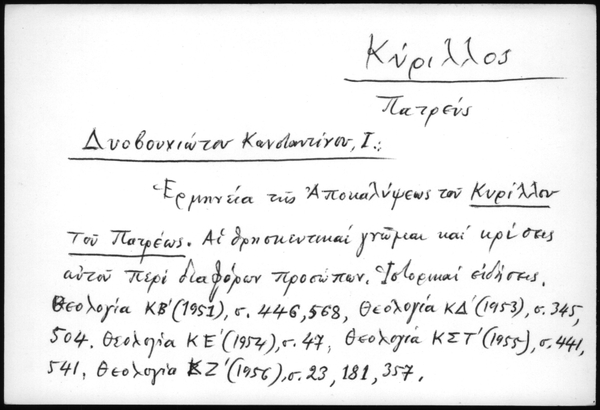 Κύριλλος
Πατρεύς
Δυοβουνιώτου Κωνσταντίνου, Ι.:
Ἑρμηνεία τῆς Ἀποκαλύψεως τοῦ Κυρίλλου
τοῦ Πατρέως. Αἱ θρησκευτικαί γνῶμαι καί κρίσεις
αὐτοῦ περί διαφόρων προσώπων. Ἱστορικαί εἰδήσεις.
Θεολογία ΚΒ' (1951), σ. 446, 568, Θεολογία ΚΔ' (1953), σ. 345,
504. Θεολογία ΚΕ' (1954), σ. 47, Θεολογία ΚΣΤ' (1955), σ. 441,
541, Θεολογία ΚΖ' (1956), σ. 23, 181, 357.